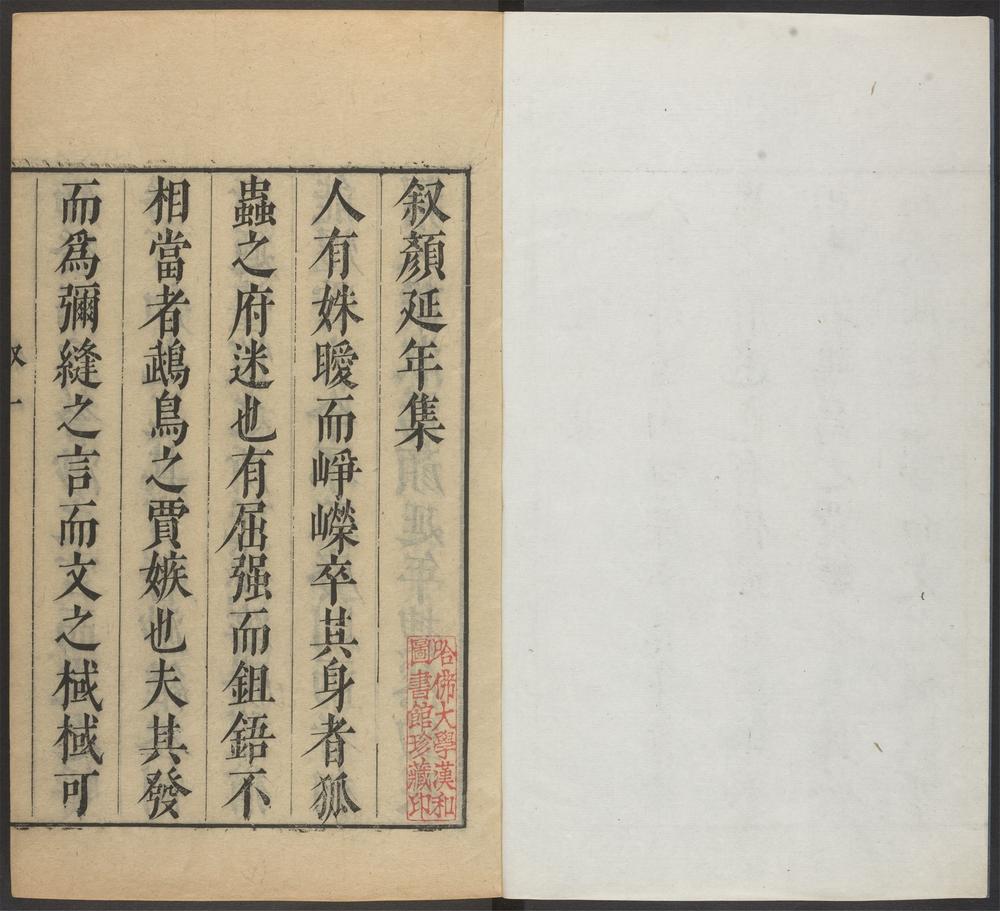 叙顏延年集
人有姝曖而崢嶸卒其身者狐
蟲之府迷也有屈强而鉏鋙不
相當者鵡鳥之賈嫉也夫其發
而爲彌縫之言而文之棫棫可
叙 一
哈佛大學漢和
圖書館珍藏印